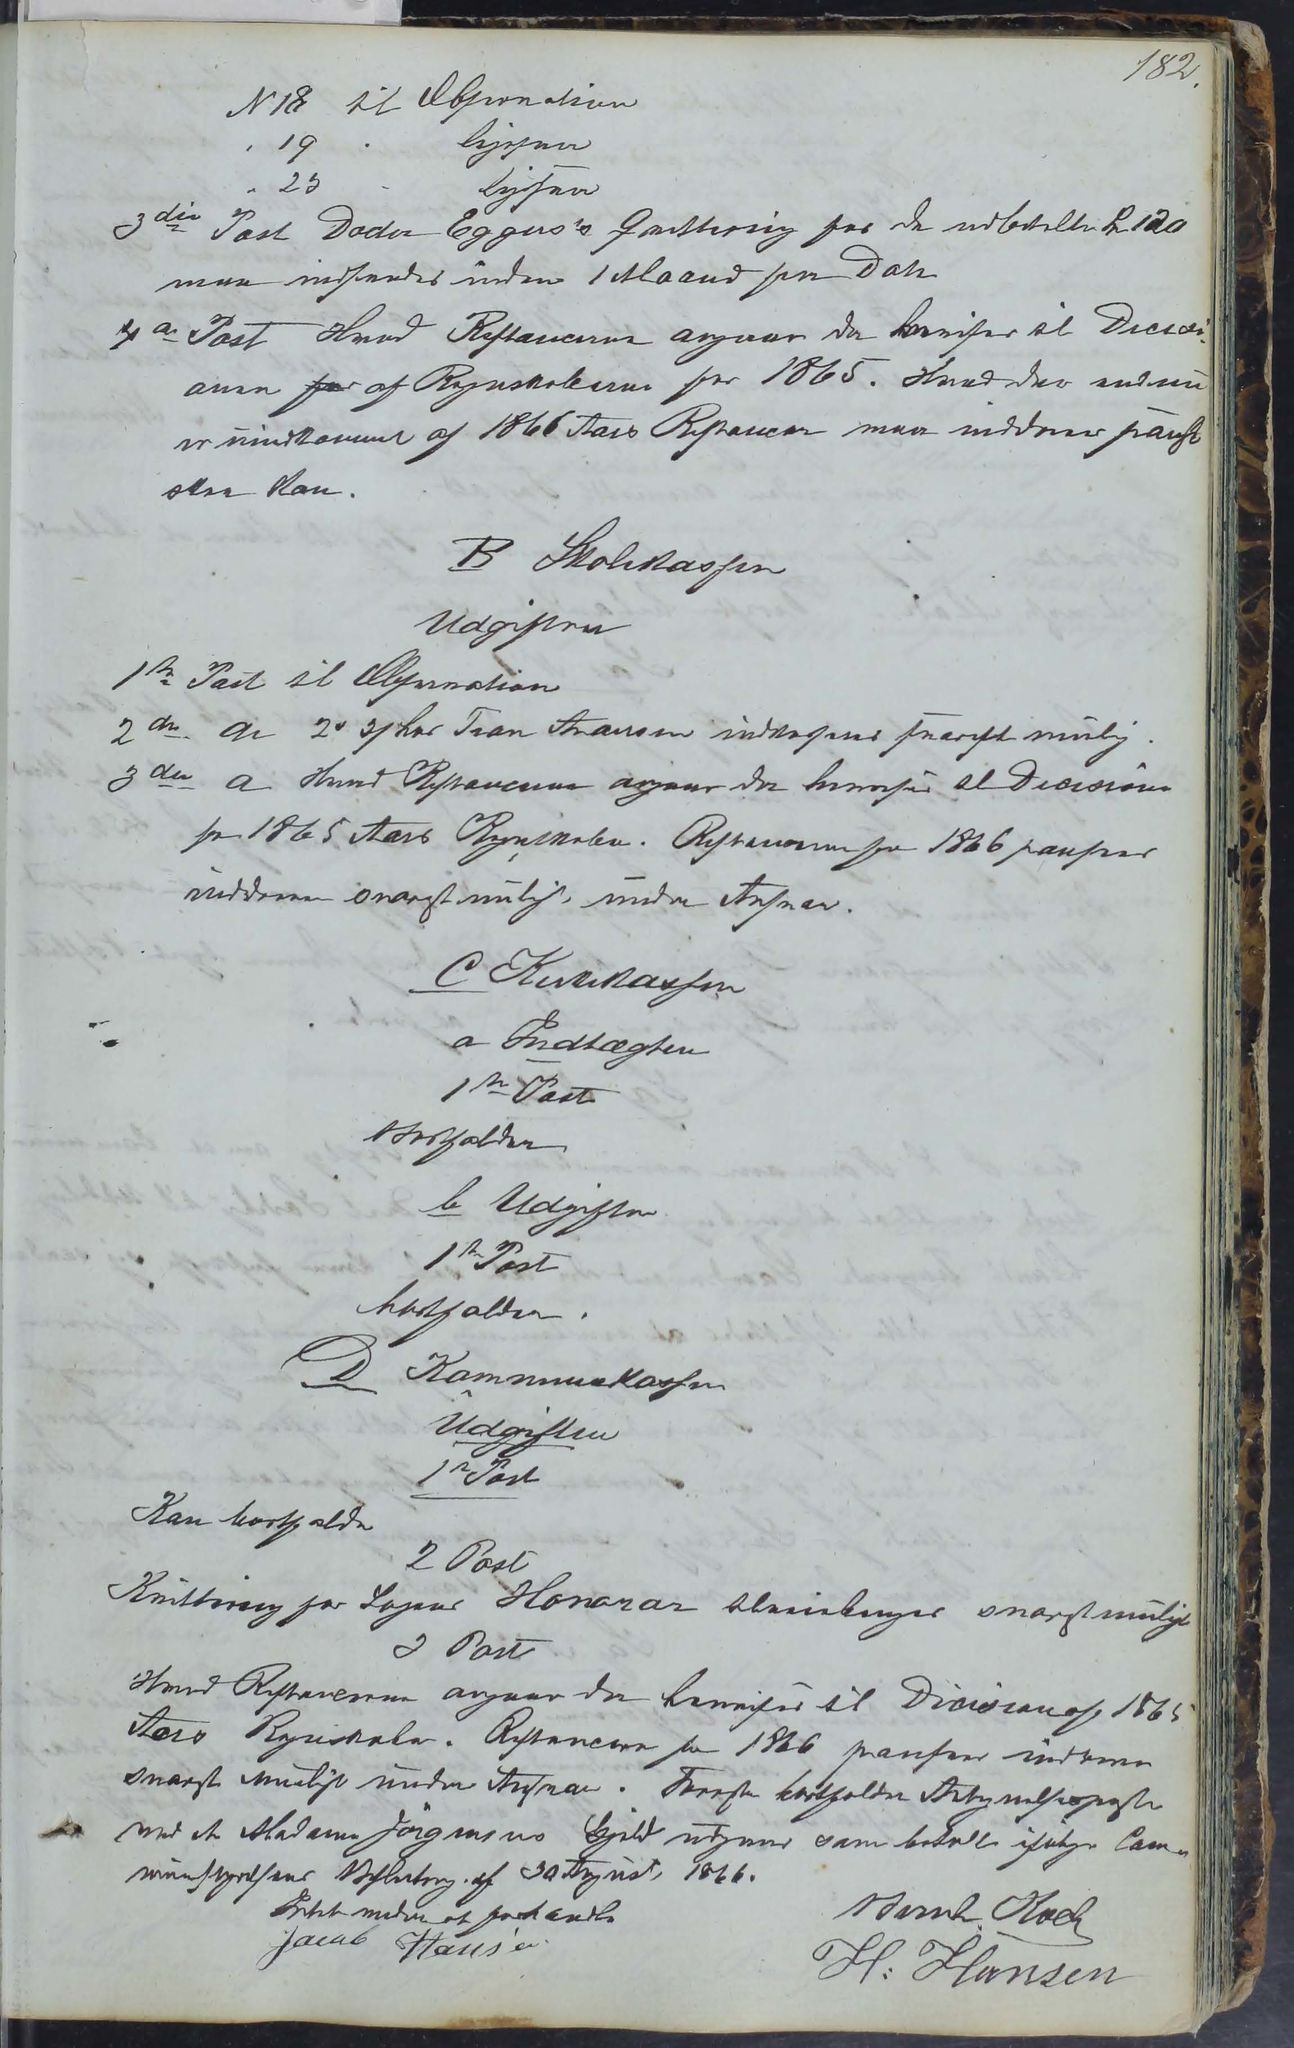 182.
N 18 til Observation
" 19 " ligesaa
" 23 " ligesaa
3die Post Doctor Eggers's Qvittering for de udbetalte R 120
maa indsendes inden 1 Maaned fra Dato
4de Post Hvad Restancerne angaaer da henvises til Decisi-
onen for af Regnskaberne for 1865. Hvad der endnu
er uindkommet af 1866 Aars Restancer maa inddrives snarest
skee kan.
B Skolekassen
Udgifter
1ste Post til Observation
2den " Tran indkræves snarest mulig.
3die " Hvad Restancerne angaaer da henvises til Decisionen
for 1865 Aars Regnskaber. Restancerne for 1866
inddrives snarest muligt, under Ansvar.
C Kirkekassen
a Indtægter
1ste Post
Bortfalder
b Udgifter
1ste Post
bortfalder.
D Kommunekassen
Udgifter
1ste Post
Kan bortfalde
2 Post
Kvittering for Honorar tilveiebringes snarest muligt
3 Post
Hvad Restancerne angaaer da henvises til Decisionen af 1865
Aars Regnskaber. Restancerne for 1866 inddrives
snarest muligt under Ansvar. bortfalder
Madame Jörgensens Gjeld udgaaer som betalt ifølge Com-
munestyrelsens Beslutning af 30 August 1866.
Intet videre at forhandle
Jacob Hansen
Bernh. Koch
H: Hansen